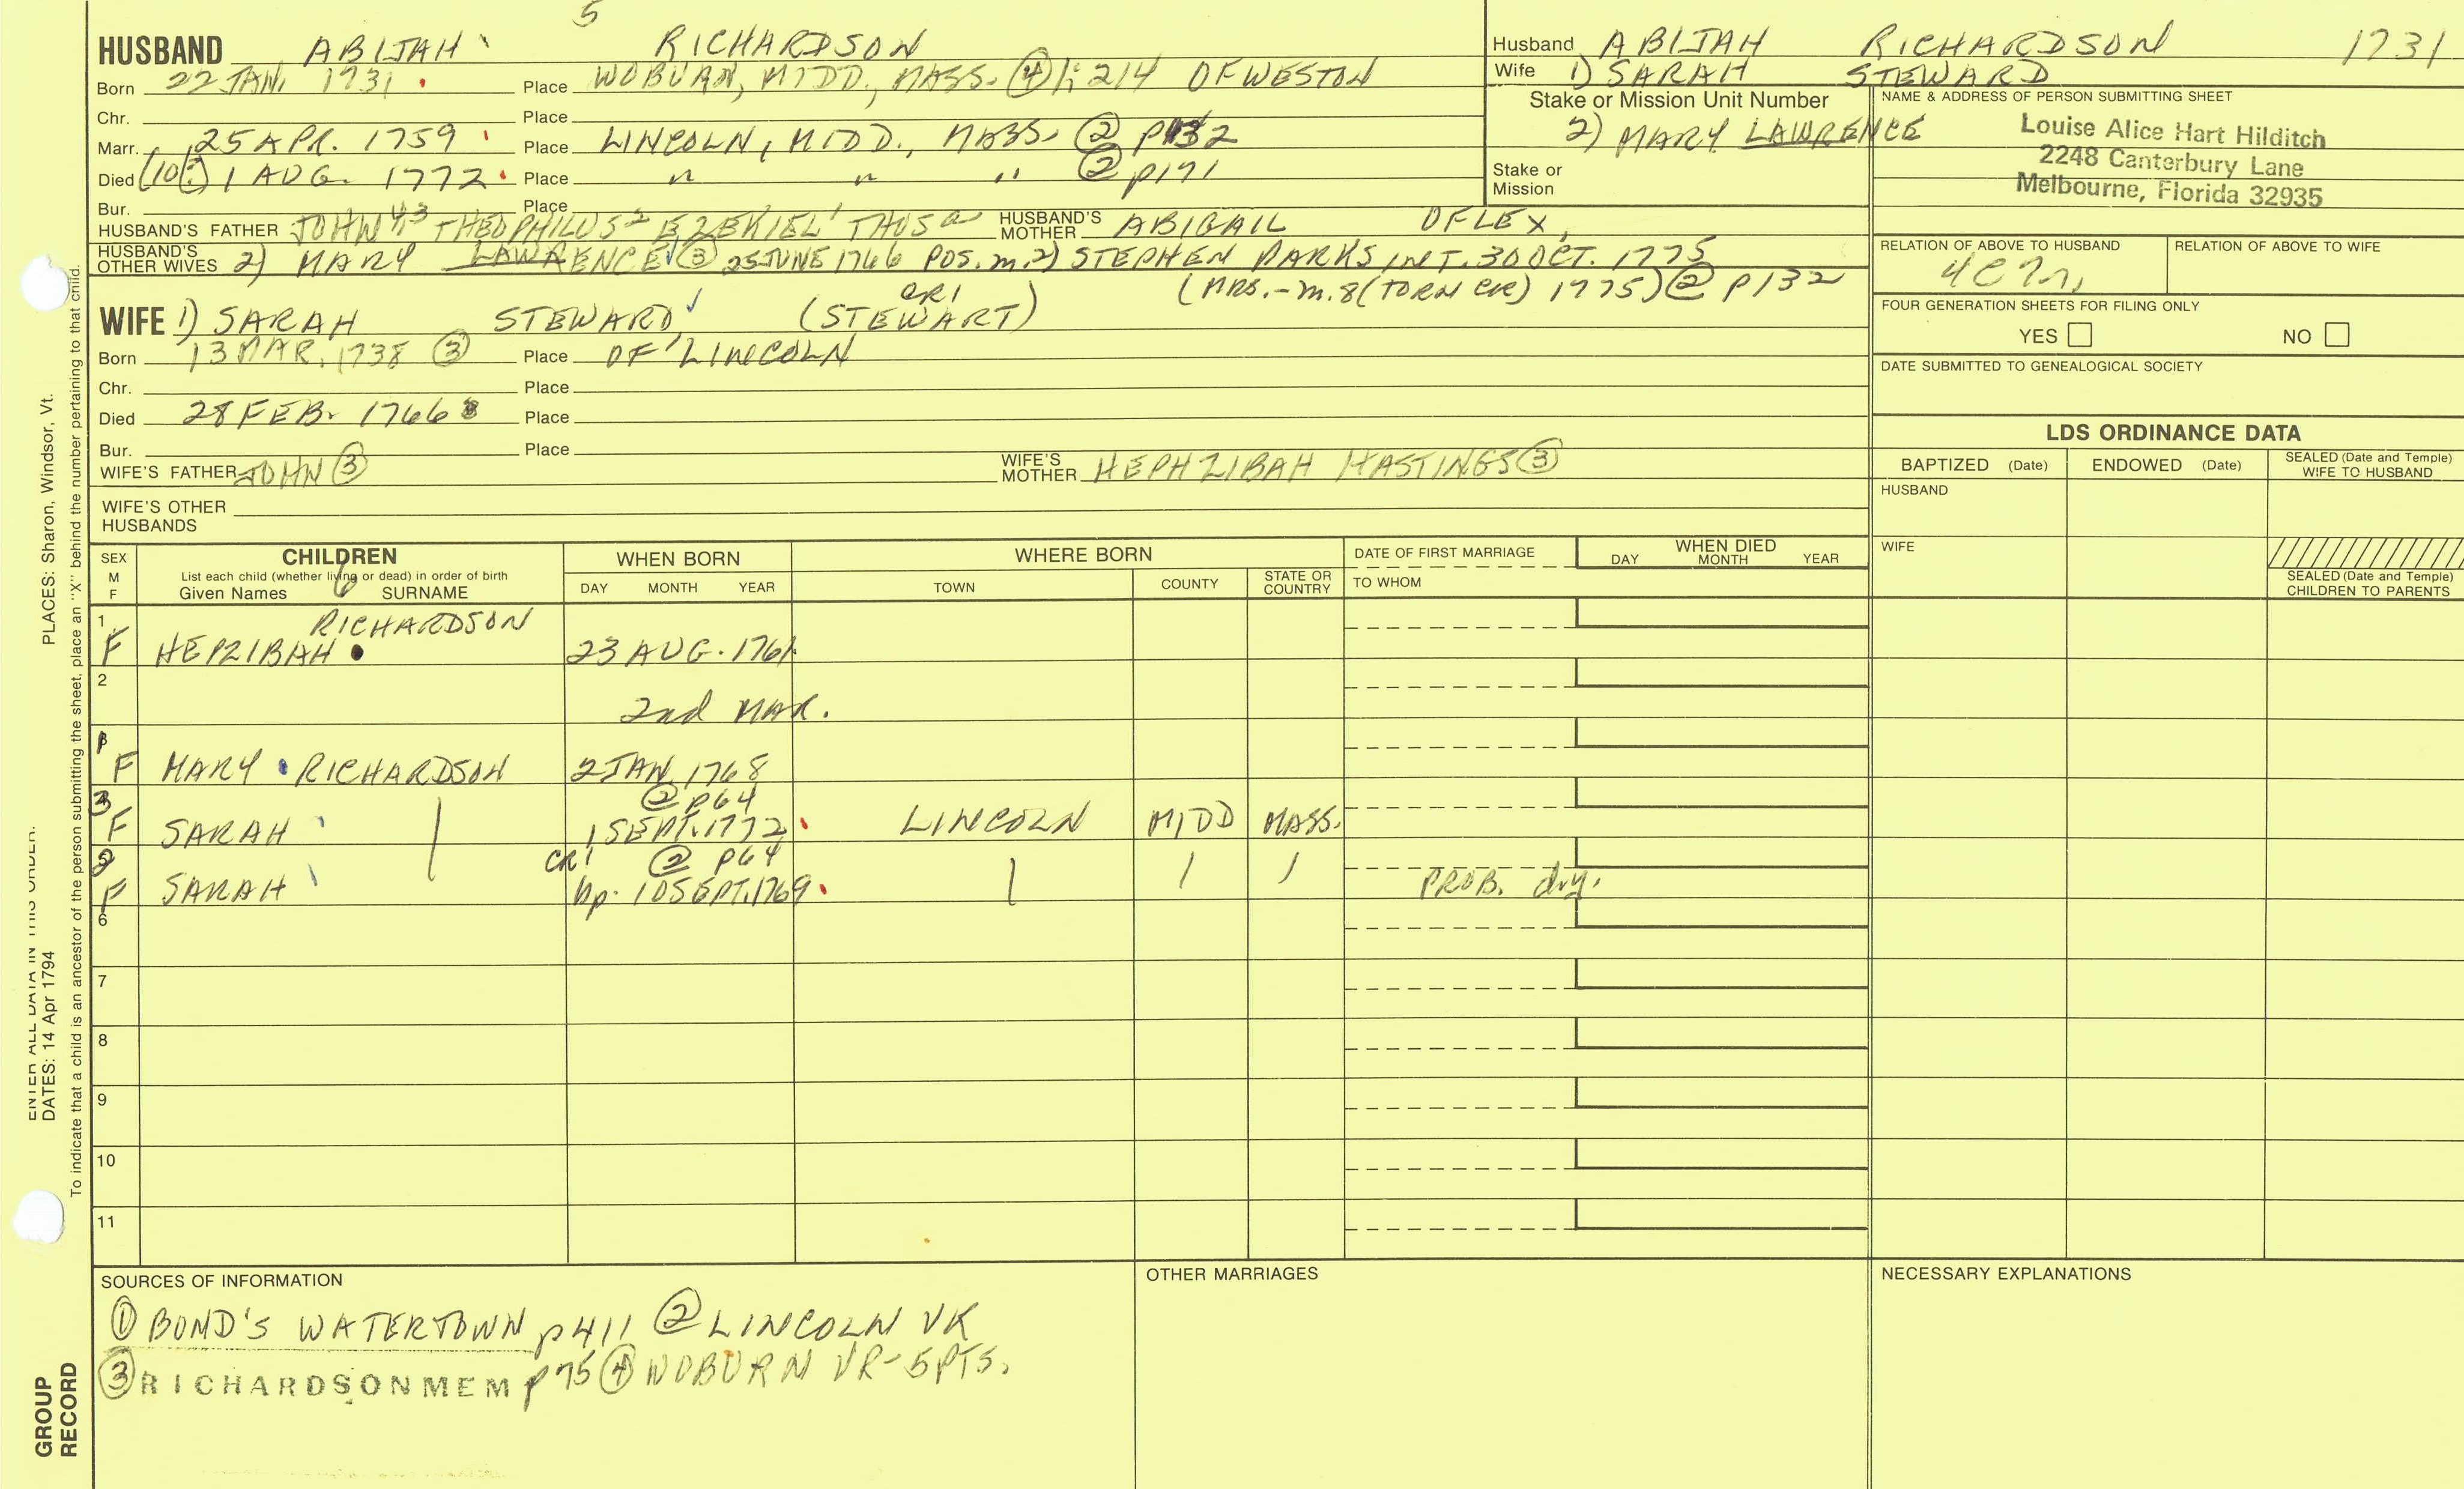 5
HUSBAND ABIJAH RICHARDSON
Born 22 JAN. 1731 Place WOBURN, MIDD., MASS. ④ 1; 214 OF WESTON
Chr. Place
Marr. 25 APR. 1759 Place LINCOLN, MIDD., MASS. ② p132
Died 1 AUG. 1772 Place " " " ② p171
Bur. Place
HUSBAND'S FATHER JOHN THEOPHILUS² EZEKIEL¹ HUSBAND'S MOTHER ABIGAIL OF LEX.
HUSBAND'S OTHER WIVES 2) MARY LAWRENCE ③ 25 JUNE 1766 POS. m. 2) STEPHEN PARKS INT. 30 OCT. 1775
(MRS.-m. 8 (TORN CR1) 1775) ② p132
WIFE 1) SARAH STEWARD (STEWART) CR1
Born 13 MAR. 1738 ③ Place OF LINCOLN
Chr. Place
Died 28 FEB. 1766 Place
Bur. Place
WIFE'S FATHER JOHN ③ WIFE'S MOTHER HEPHZIBAH HASTINGS ③
WIFE'S OTHER HUSBANDS
Husband ABIJAH RICHARDSON 1731
Wife 1) SARAH STEWARD
Stake or Mission Unit Number
2) MARY LAWRENCE
Stake or Mission
NAME & ADDRESS OF PERSON SUBMITTING SHEET
Louise Alice Hart Hilditch
2248 Canterbury Lane
Melbourne, Florida 32935
RELATION OF ABOVE TO HUSBAND RELATION OF ABOVE TO WIFE
FOUR GENERATION SHEETS FOR FILING ONLY
YES NO
DATE SUBMITTED TO GENEALOGICAL SOCIETY
LDS ORDINANCE DATA
BAPTIZED (Date) ENDOWED (Date) SEALED (Date and Temple) WIFE TO HUSBAND
HUSBAND
WIFE
SEALED (Date and Temple) CHILDREN TO PARENTS
SEX M F
CHILDREN
List each child (whether living or dead) in order of birth
Given Names 6 SURNAME
WHEN BORN
DAY MONTH YEAR
WHERE BORN
TOWN COUNTY STATE OR COUNTRY
DATE OF FIRST MARRIAGE
TO WHOM
WHEN DIED
DAY MONTH YEAR
1 RICHARDSON
F HEPZIBAH 23 AUG. 1761
2
2nd MAR.
F MARY RICHARDSON 2 JAN 1768
3 ② p64
F SARAH 1 SEPT. 1772 LINCOLN MIDD MASS.
CR1 ② p64
F SARAH bp. 10 SEPT. 1769 PROB. dry.
6
7
8
9
10
11
SOURCES OF INFORMATION
① BOND'S WATERTOWN p411 ② LINCOLN VR
③ RICHARDSON MEM p75 ④ WOBURN VR-5PTS.
OTHER MARRIAGES
NECESSARY EXPLANATIONS
ENTER ALL DATA IN THIS ORDER:
DATES: 14 Apr 1794
PLACES: Sharon, Windsor, Vt.
To indicate that a child is an ancestor of the person submitting the sheet, place an "X" behind the number pertaining to that child.
GROUP
RECORD